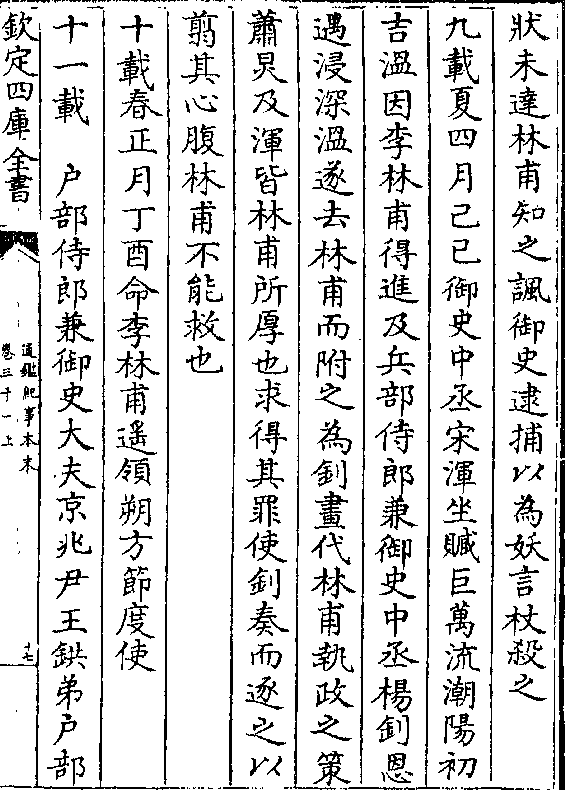 狀未達林甫知之諷御史逮捕以為妖言杖殺之
九載夏四月己巳御史中丞宋渾坐贓巨萬流潮陽初
吉溫因李林甫得進及兵部侍郎兼御史中丞楊釗恩
遇浸深溫遂去林甫而附之為釗畫代林甫執政之策
蕭炅及渾皆林甫所厚也求得其罪使釗奏而逐之以
翦其心腹林甫不能救也
十載春正月丁酉命李林甫遙領朔方節度使
十一載 户部侍郎兼御史大夫京兆尹王鉷弟户部
欽定四庫全書
通鑑紀事本末
卷三十一上
十七